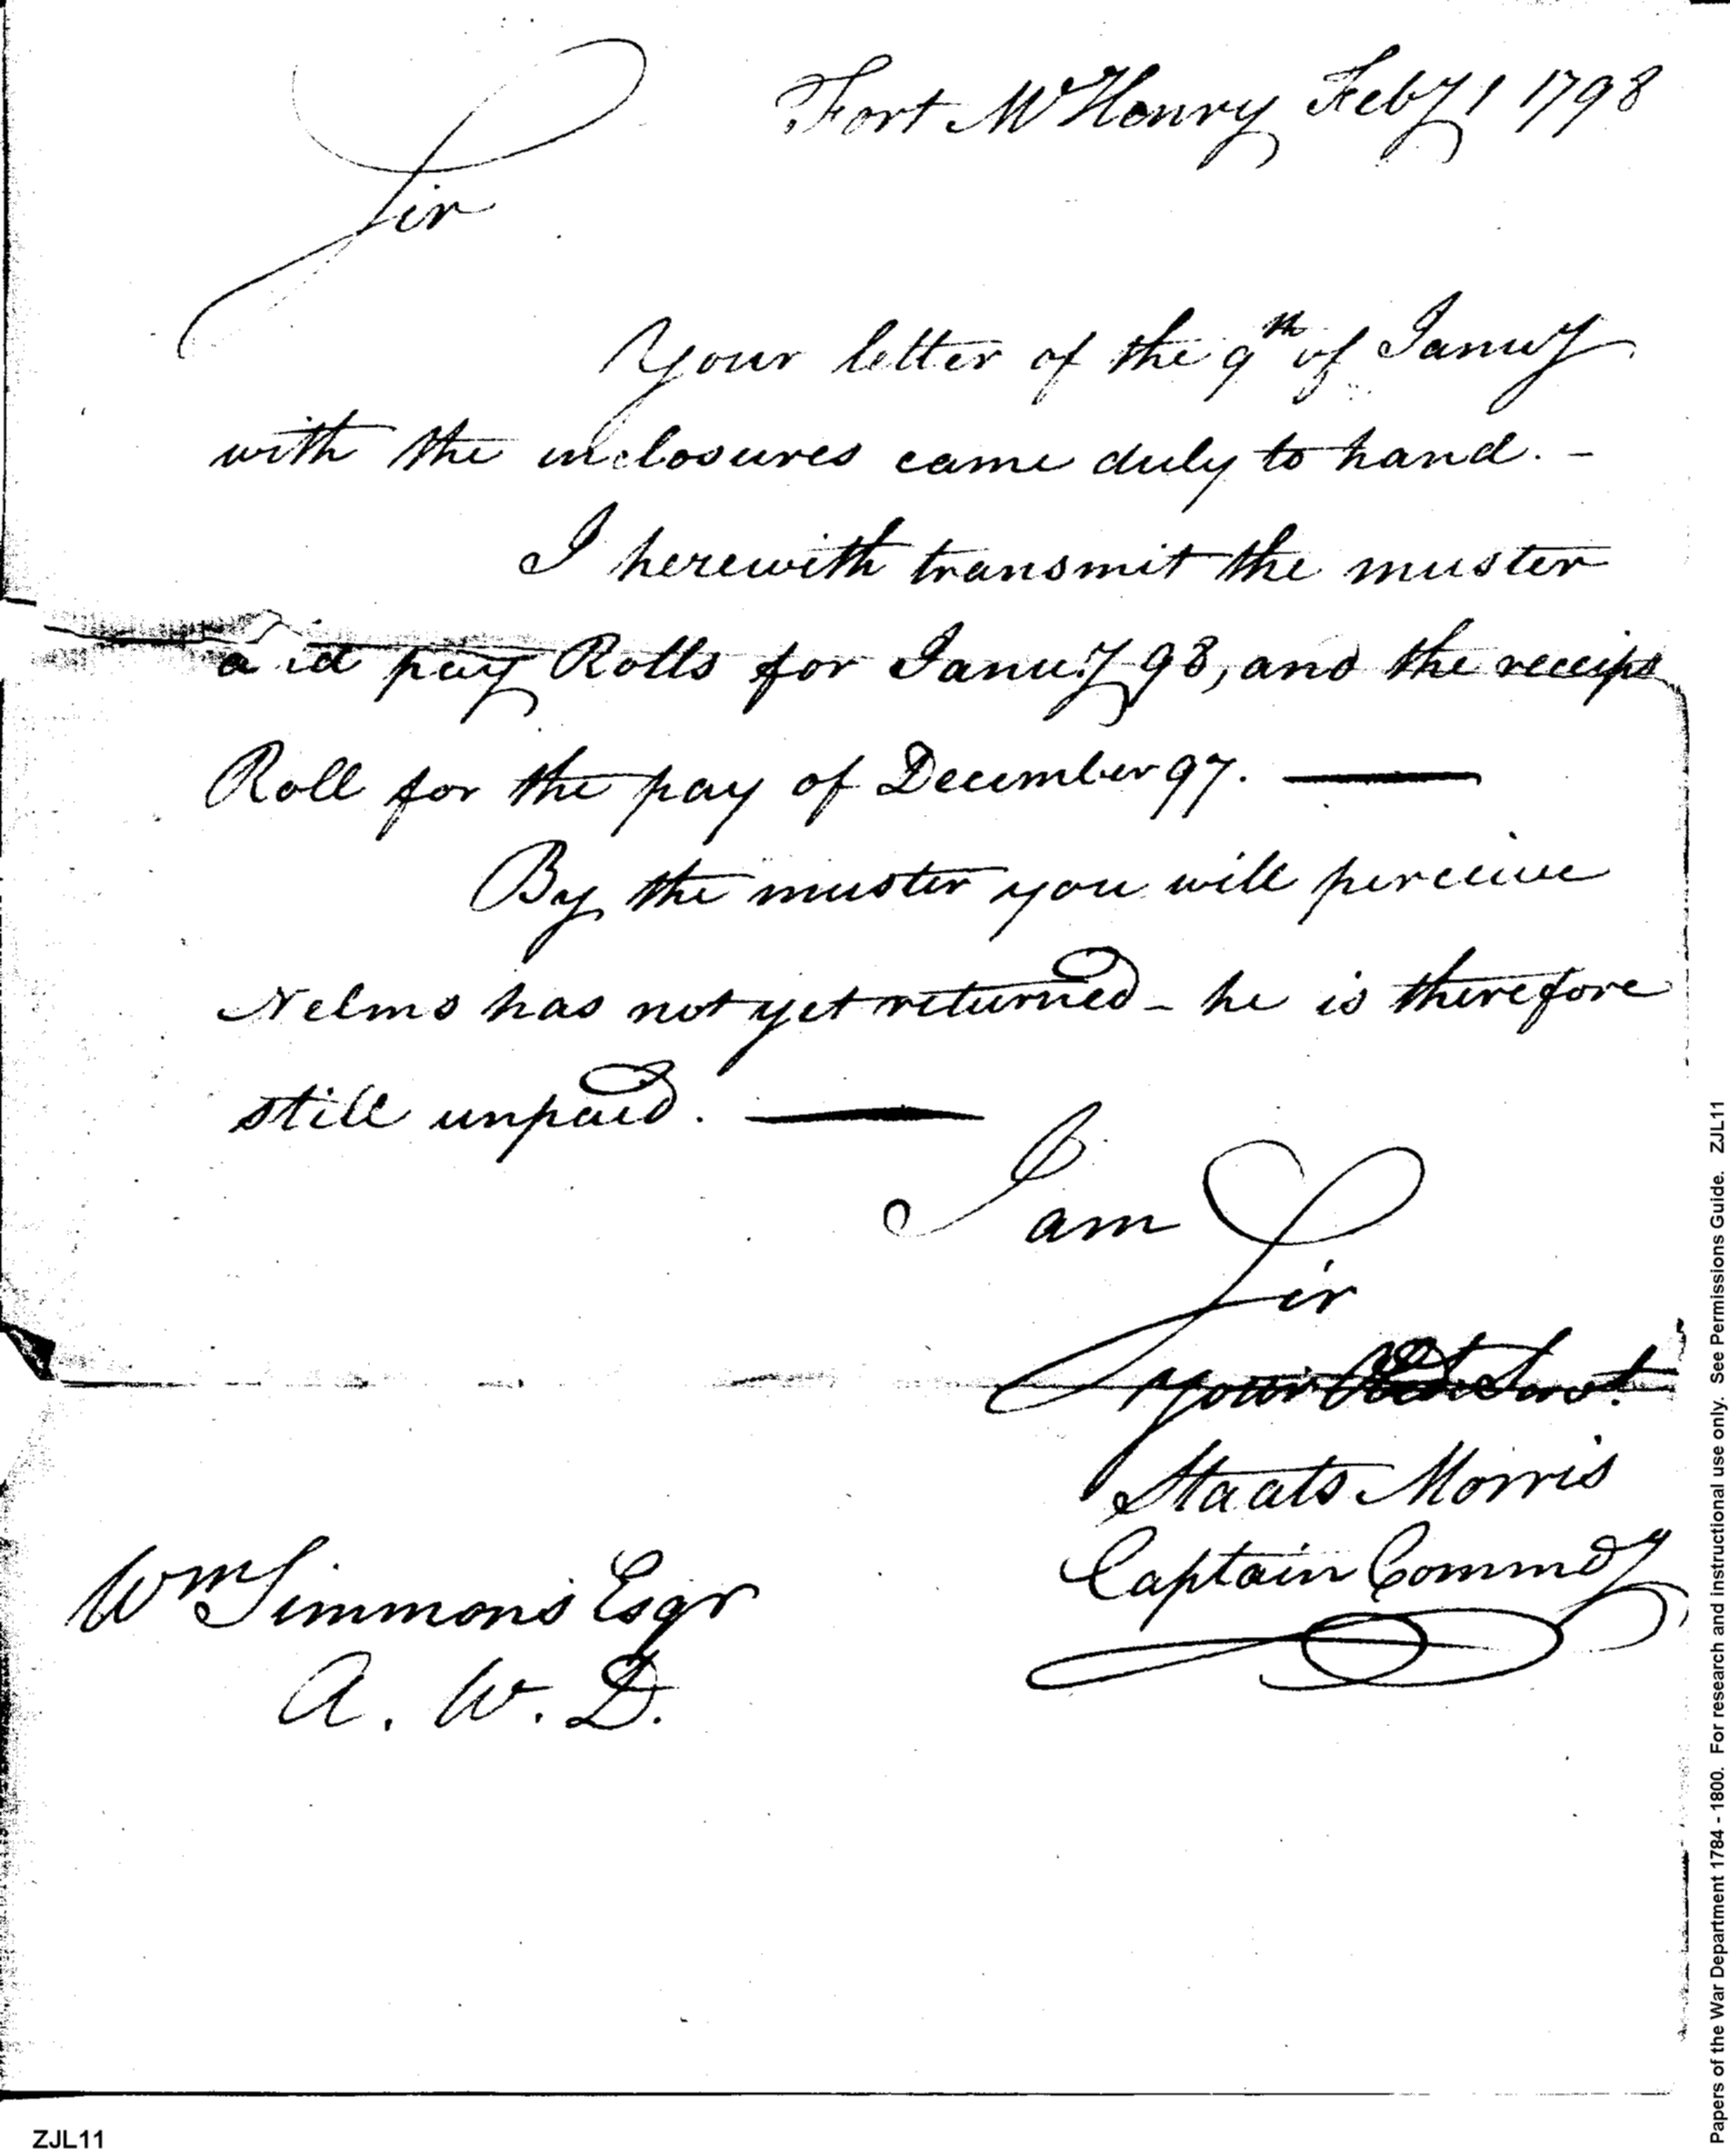 Fort McHenry Feby 1 1798
Sir
Your letter of the 9th of Januy
with the inclosures came duly to hand. -
I herewith transmit the muster
and pay Rolls for Januy 98, and the receipt
Roll for the pay of December 97. —
By the muster you will perceive
Nelms has not yet returned - he is therefore
still unpaid. —
I am
Sir
your Obd Servt
Staats Morris
Captain Commdg
Wm Simmons Esqr
A. W. D.
ZJL11
Papers of the War Department 1784 - 1800. For research and instructional use only. See Permissions Guide. ZJL11